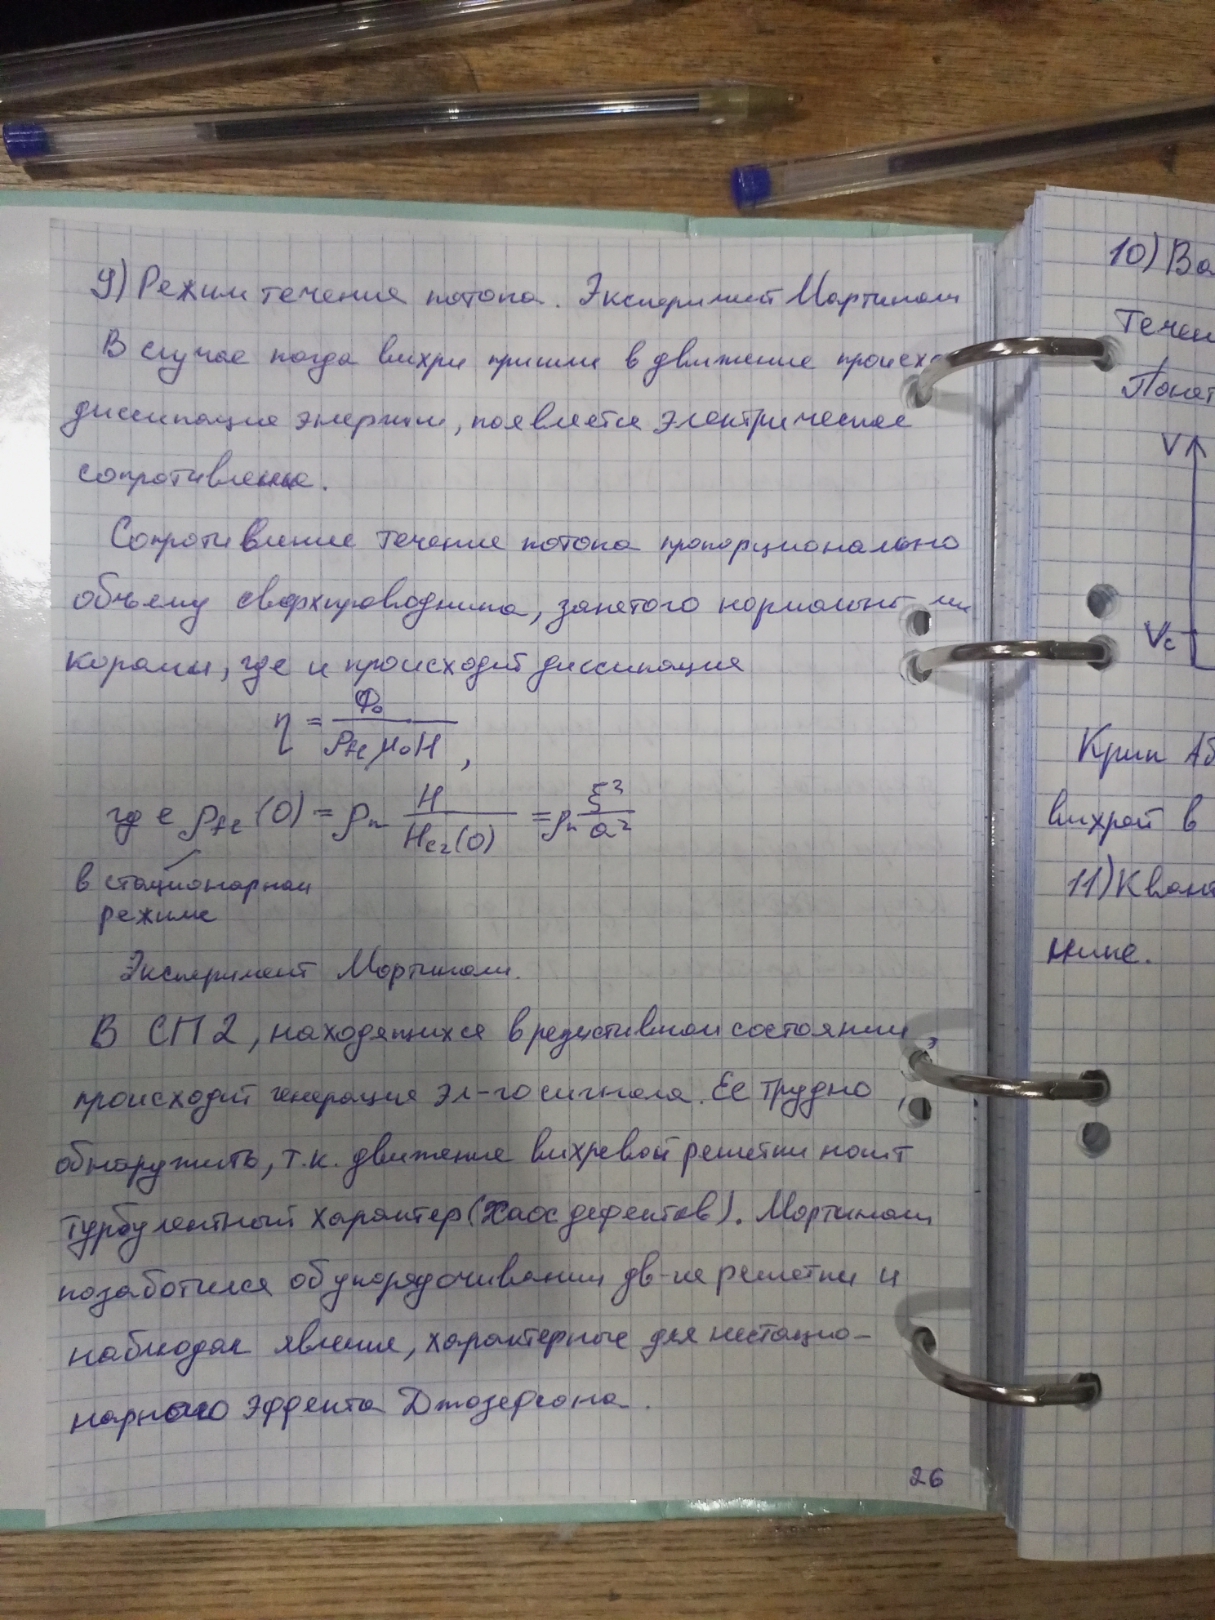 9) Режим течения потока. Эксперимент Мартиноли
В случае когда вихри пришли в движение происхо
диссипация энергии, появляется электрическое
сопротивление.
Сопротивление течения потока пропорционально
объему сверхпроводника, занятого нормальными
корами, где и происходит диссипация
η = Φ₀ / ρff μ₀H ,
где ρff(0) = ρn H / Hc2(0) = ρn ξ² / a²
в стационарном
режиме
Эксперимент Мартиноли.
В СП2, находящихся в резистивном состоянии,
происходит генерация эл-го сигнала. Ее трудно
обнаружить, т.к. движение вихревой решетки носит
турбулентный характер (хаос дефектов). Мартиноли
позаботился об упорядочивании дв-ия решетки и
наблюдал явления, характерные для нестацио-
нарного эффекта Джозефсона.
26
10) Во
Течен
Понят
V
Vc
Крип Аб
вихрей в
11) Кван
нике.